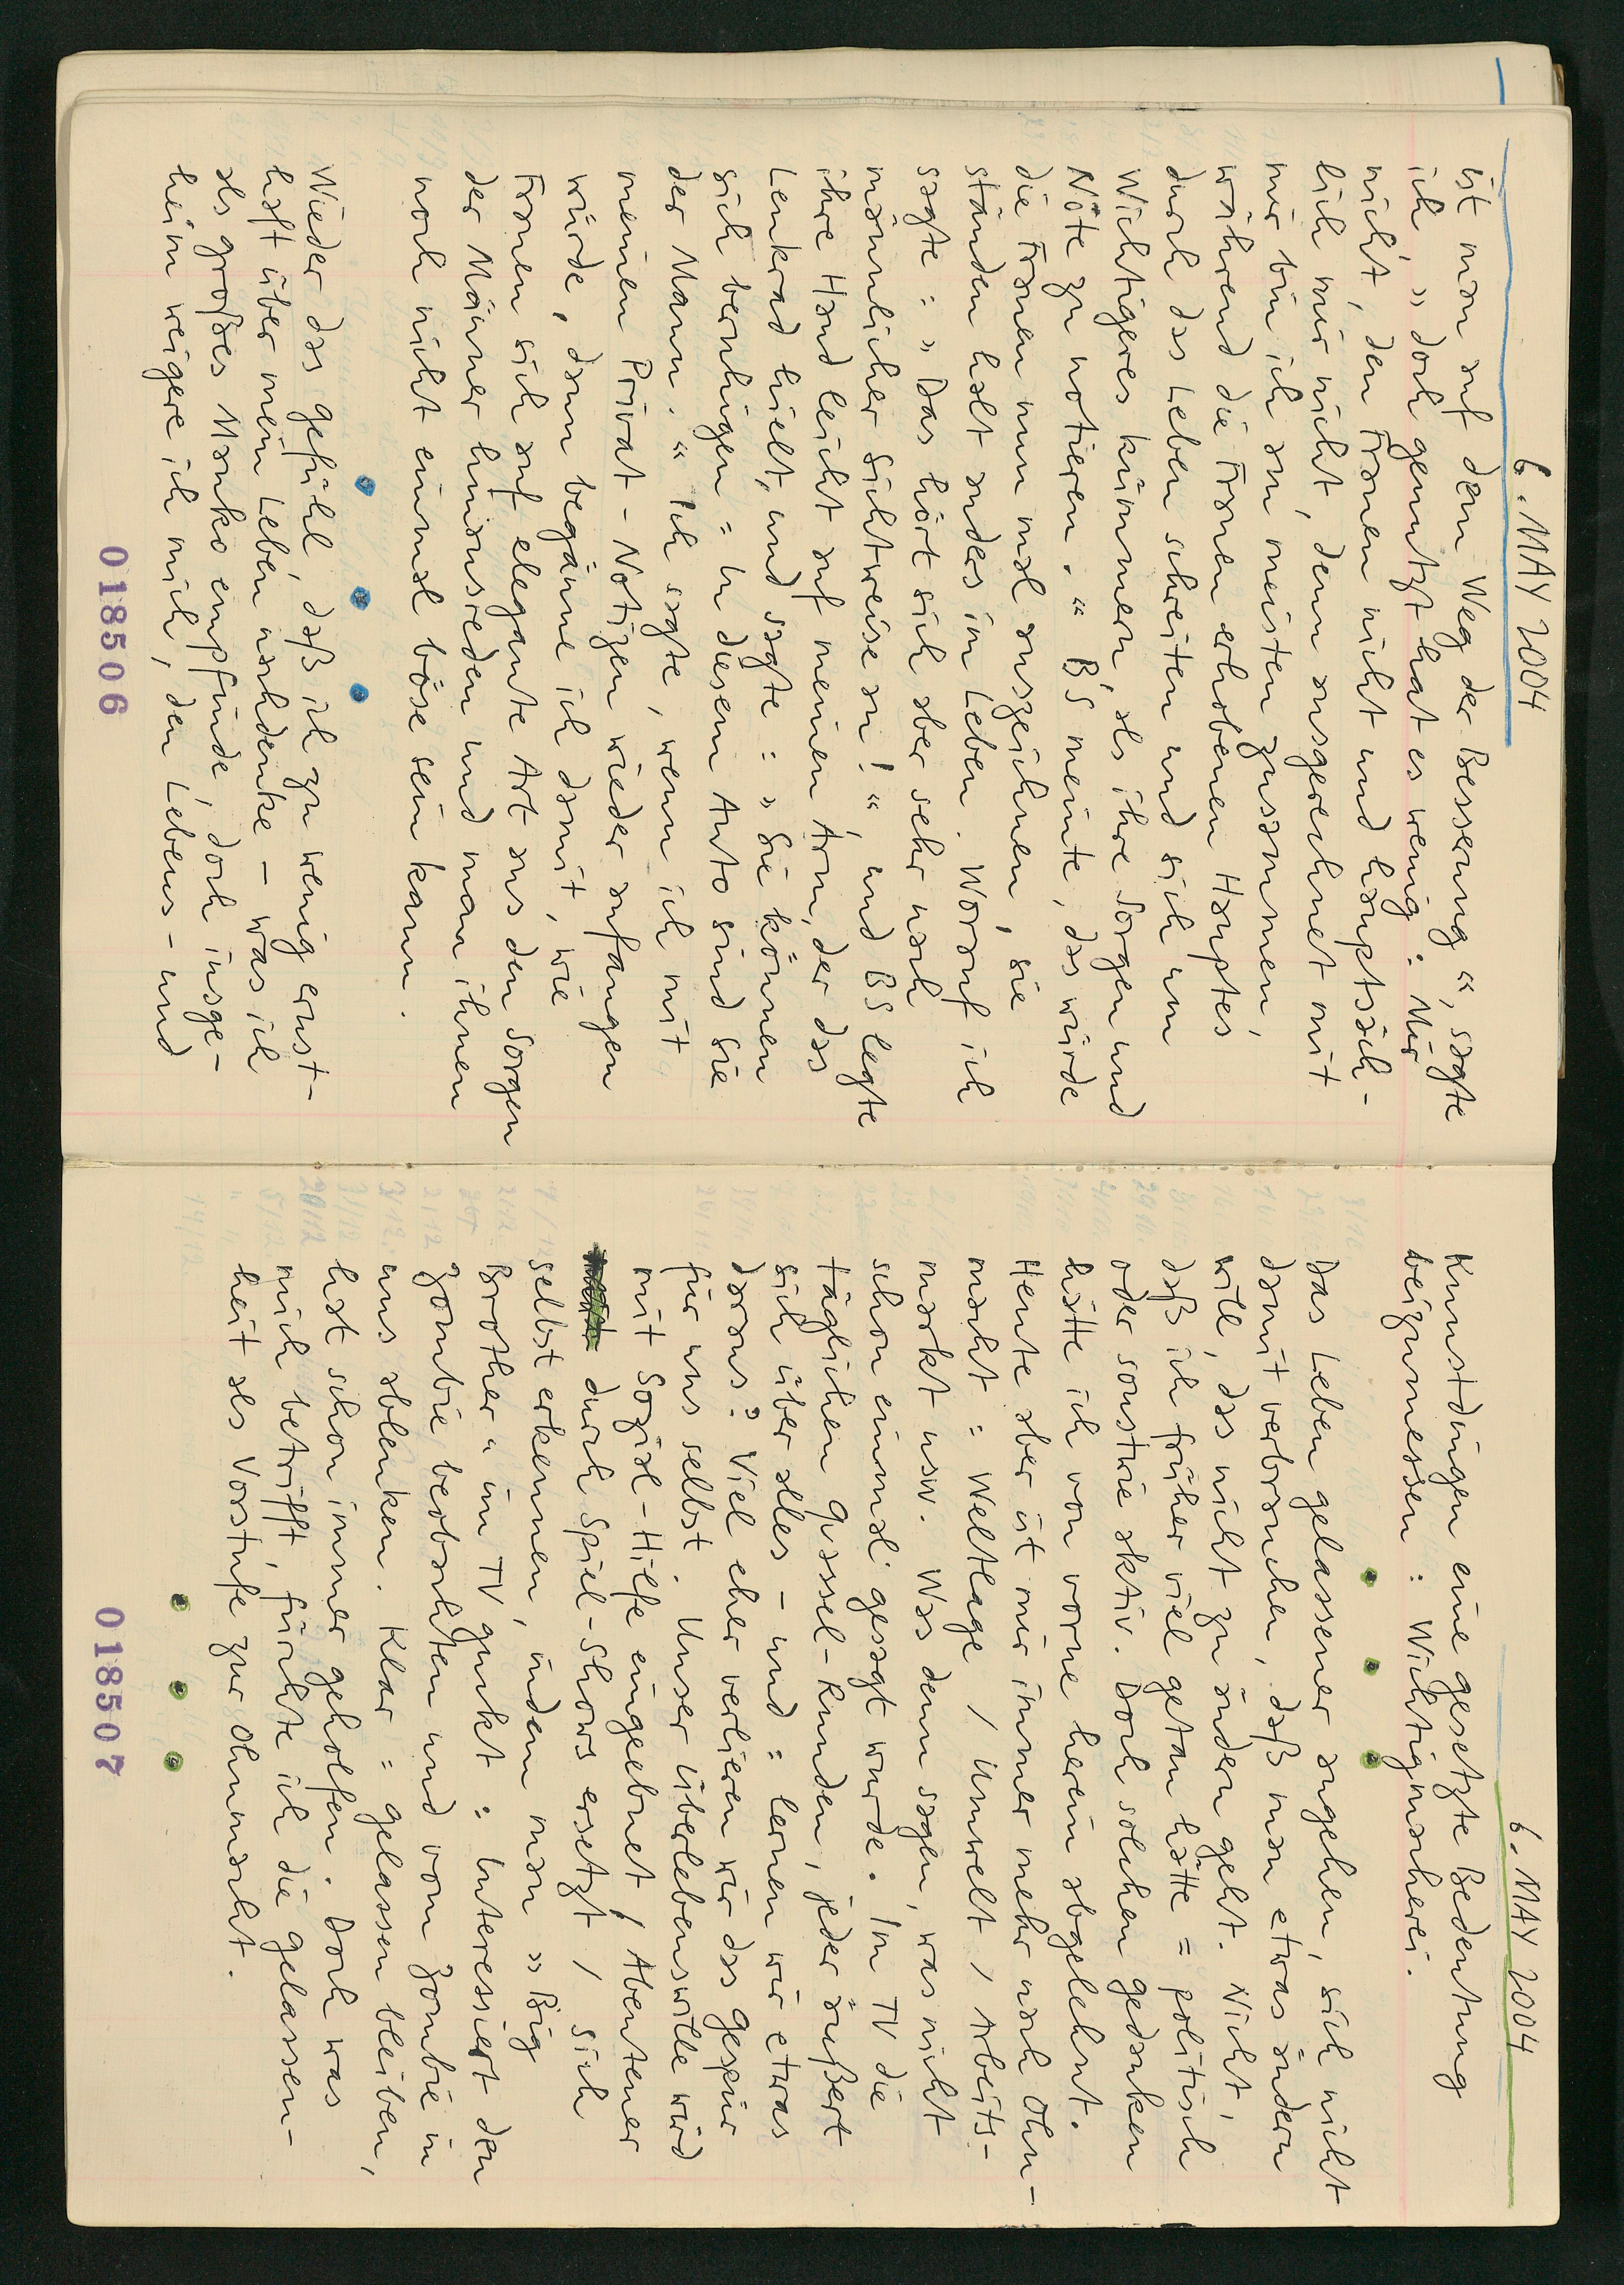 6. MAY 2004
ist man auf dem Weg der Besserung“, sagte
ich, „doch genutzt hat es wenig: Mir
nicht, den Frauen nicht und hauptsäch-
lich mir nicht, denn ausgerechnet mit
mir bin ich am meisten zusammen,
während die Frauen erhobenen Hauptes
durch das Leben schreiten und sich um
Wichtigeres kümmern, als ihre Sorgen und
Nöte zu notieren.“ BS meinte, das würde
die Frauen nun mal auszeichnen, sie
ständen halt anders im Leben. Worauf ich
sagte: „Das hört sich aber sehr nach
männlicher Sichtweise an!“, und BS legte
ihre Hand leicht auf meinen Arm, der das
Lenkrad hielt, und sagte: „Sie können
sich beruhigen: In diesem Auto sind Sie
der Mann.“ Ich sagte, wenn ich mit
meinen Privat-Notizen wieder anfangen
würde, dann begänne ich damit, wie
Frauen sich auf elegante Art aus den Sorgen
der Männer hinausreden und man ihnen
noch nicht einmal böse sein kann.
Wieder das Gefühl, daß ich zu wenig ernst-
haft über mein Leben nachdenke – was ich
als großes Manko empfinde, doch insge-
heim weigere ich mich, den Lebens- und
018506
6. MAY 2004
Kunstdingen eine gesetzte Bedeutung
beizumessen: Wichtigmacherei.
Das Leben gelassener angehen, sich nicht
damit verbrauchen, daß man etwas ändern
will, das nicht zu ändern geht. Nicht,
daß ich früher viel getan hätte = politisch
oder sonstwie aktiv. Doch solchen Gedanken
hätte ich von vorne herein abgelehnt.
Heute aber ist mir immer mehr nach Ohn-
macht: Weltlage / Umwelt / Arbeits-
markt usw. Was denn sagen, was nicht
schon einmal gesagt wurde. Im TV die
täglichen Quassel-Runden, jeder äußert
sich über alles – und: lernen wir etwas
daraus? Viel eher verlieren wir das Gespür
für uns selbst. Unser Überlebenswille wird
mit Sozial-Hilfe eingeebnet / Abenteuer
durch Spiel-Shows ersetzt / sich
selbst erkennen, indem man „Big
Brother“ im TV guckt: Interessiert den
Zombie beobachten und vom Zombie in
uns ablenken. Klar: gelassen bleiben,
hat schon immer geholfen. Doch was
mich betrifft, fürchte ich die Gelassen-
heit als Vorstufe zur Ohnmacht.
018507